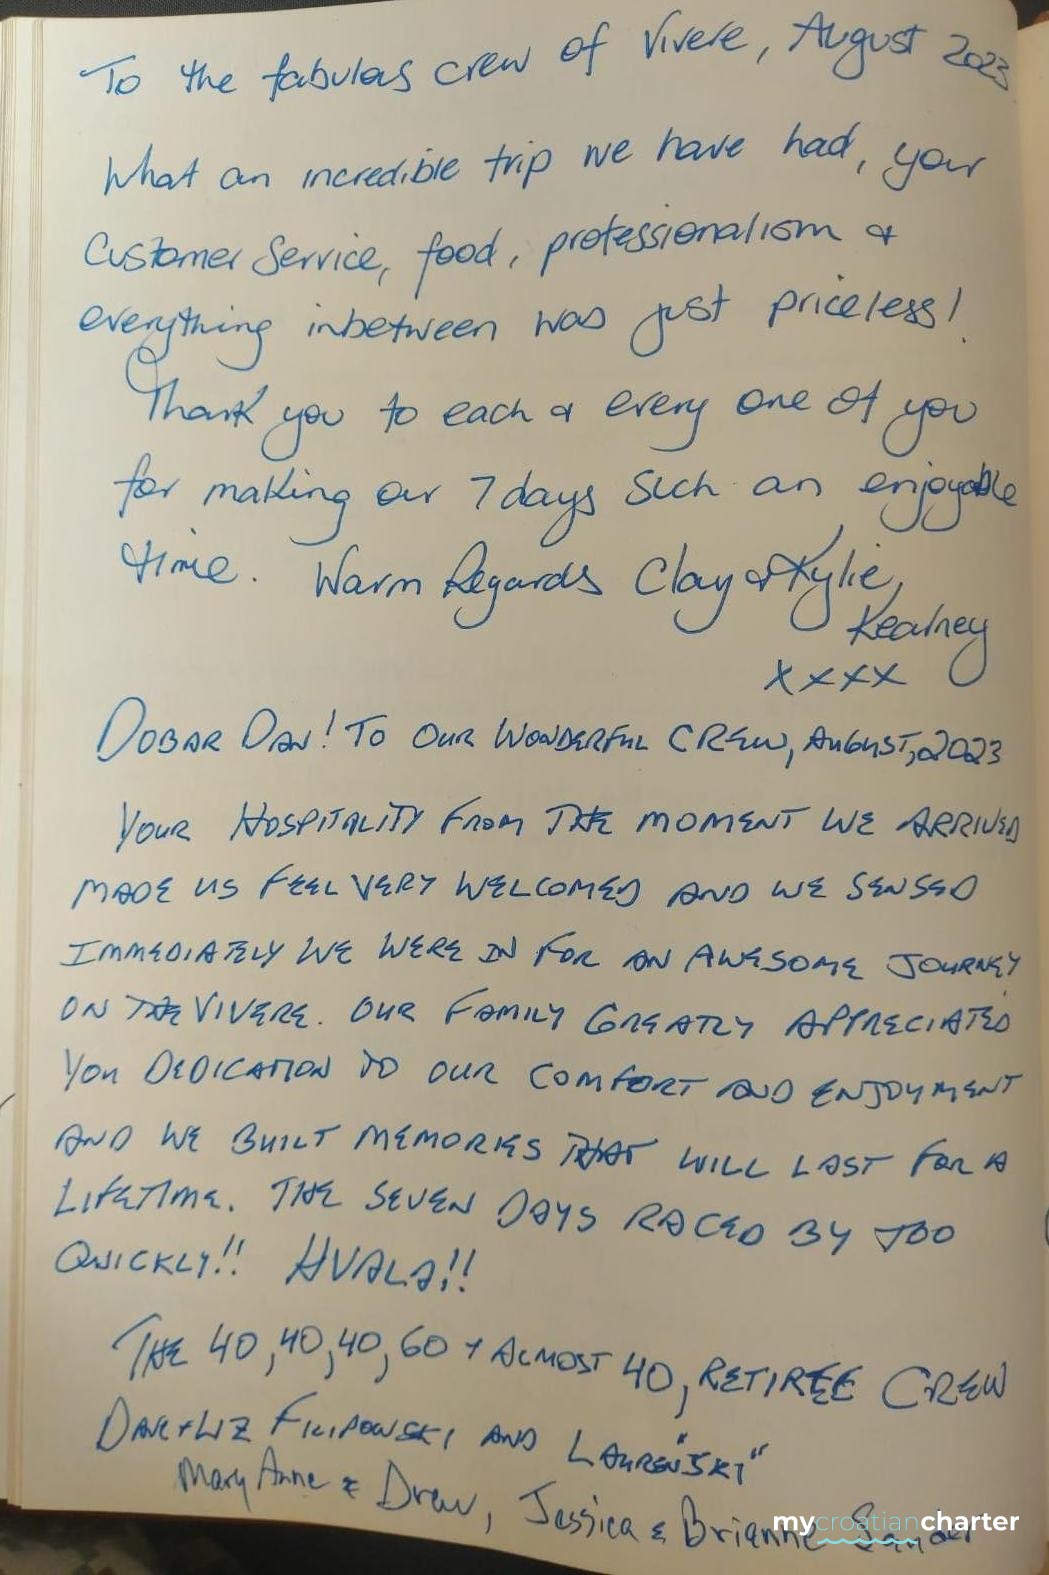 To the fabulas crew of Vivere, August 2023
What an incredible trip we have had, your
Customer Service, food, professionalism &
everything inbetween was just priceless!
Thank you to each & every one of you
for making our 7 days such an enjoyable
time. Warm Regards Clay & Kylie,
Kearney
xxxx
DOBAR DAN! TO OUR WONDERFUL CREW, AUGUST, 2023
YOUR HOSPITALITY FROM THE MOMENT WE ARRIVED
MADE US FEEL VERY WELCOMED AND WE SENSED
IMMEDIATELY WE WERE IN FOR AN AWESOME JOURNEY
ON THE VIVERE. OUR FAMILY GREATLY APPRECIATED
YOU DEDICATION TO OUR COMFORT AND ENJOYMENT
AND WE BUILT MEMORIES THAT WILL LAST FOR A
LIFETIME. THE SEVEN DAYS RACED BY TOO
QUICKLY!! HVALA!!
THE 40, 40, 40, 60 + ALMOST 40, RETIREE CREW
DAVE + LIZ FILIPOWSKI AND LAUREN "SKI"
Mary Anne & Drew, Jessica & Brianne
mycroatiancharter